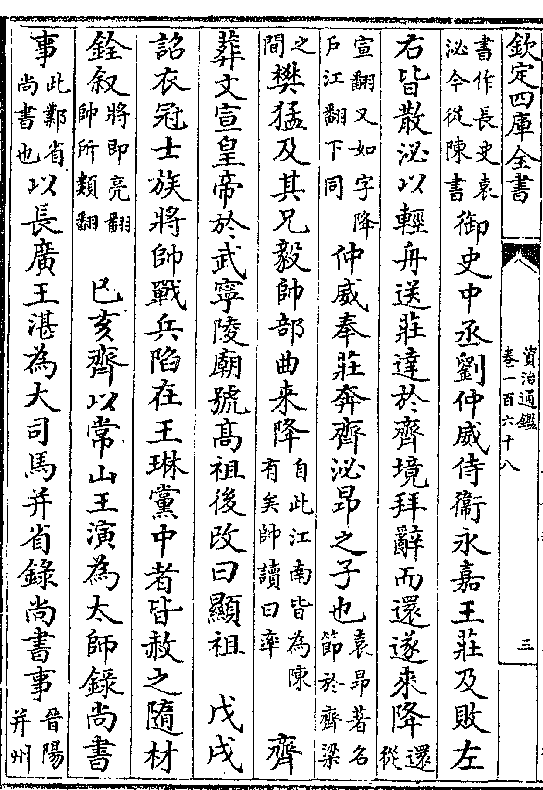 欽定四庫全書 資治通鑑 卷一百六十八 三
書作長史袁泌今從陳書御史中丞劉仲威侍衞永嘉王莊及敗左
右皆散泌以輕舟送莊達於齊境拜辭而還遂來降還從
宣翻又如字降戶江翻下同仲威奉莊奔齊泌昂之子也袁昂著名節於齊梁
之間樊猛及其兄毅帥部曲來降自此江南皆為陳有矣帥讀曰率 齊
葬文宣皇帝於武寧陵廟號高祖後改曰顯祖 戊戌
詔衣冠士族將帥戰兵陷在王琳黨中者皆赦之隨材
銓叙將即亮翻帥所類翻 巳亥齊以常山王演為太師錄尚書
事此鄴省尚書也以長廣王湛為大司馬并省錄尚書事晉陽并州